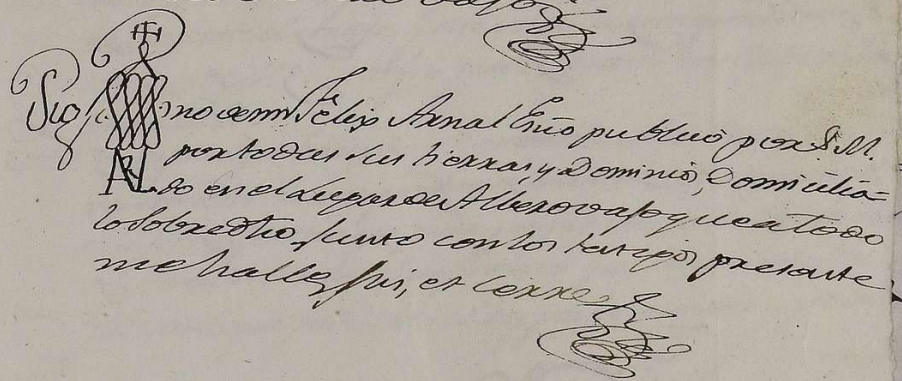 Sig no de mi Felix Arnal Esno publico por S. M.
por todas sus tierras, y Dominios, Domicilia-
do en el Lugar de Albero vajo que a todo
lo sobredho, junto con los testigos presente
me halle, fui, et cerre